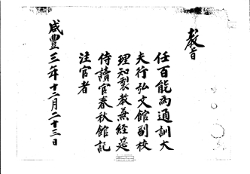 教旨
任百能為通訓大
夫行弘文館副校
理知製教兼經筵
侍讀官春秋館記
注官者
咸豐三年十二月二十三日